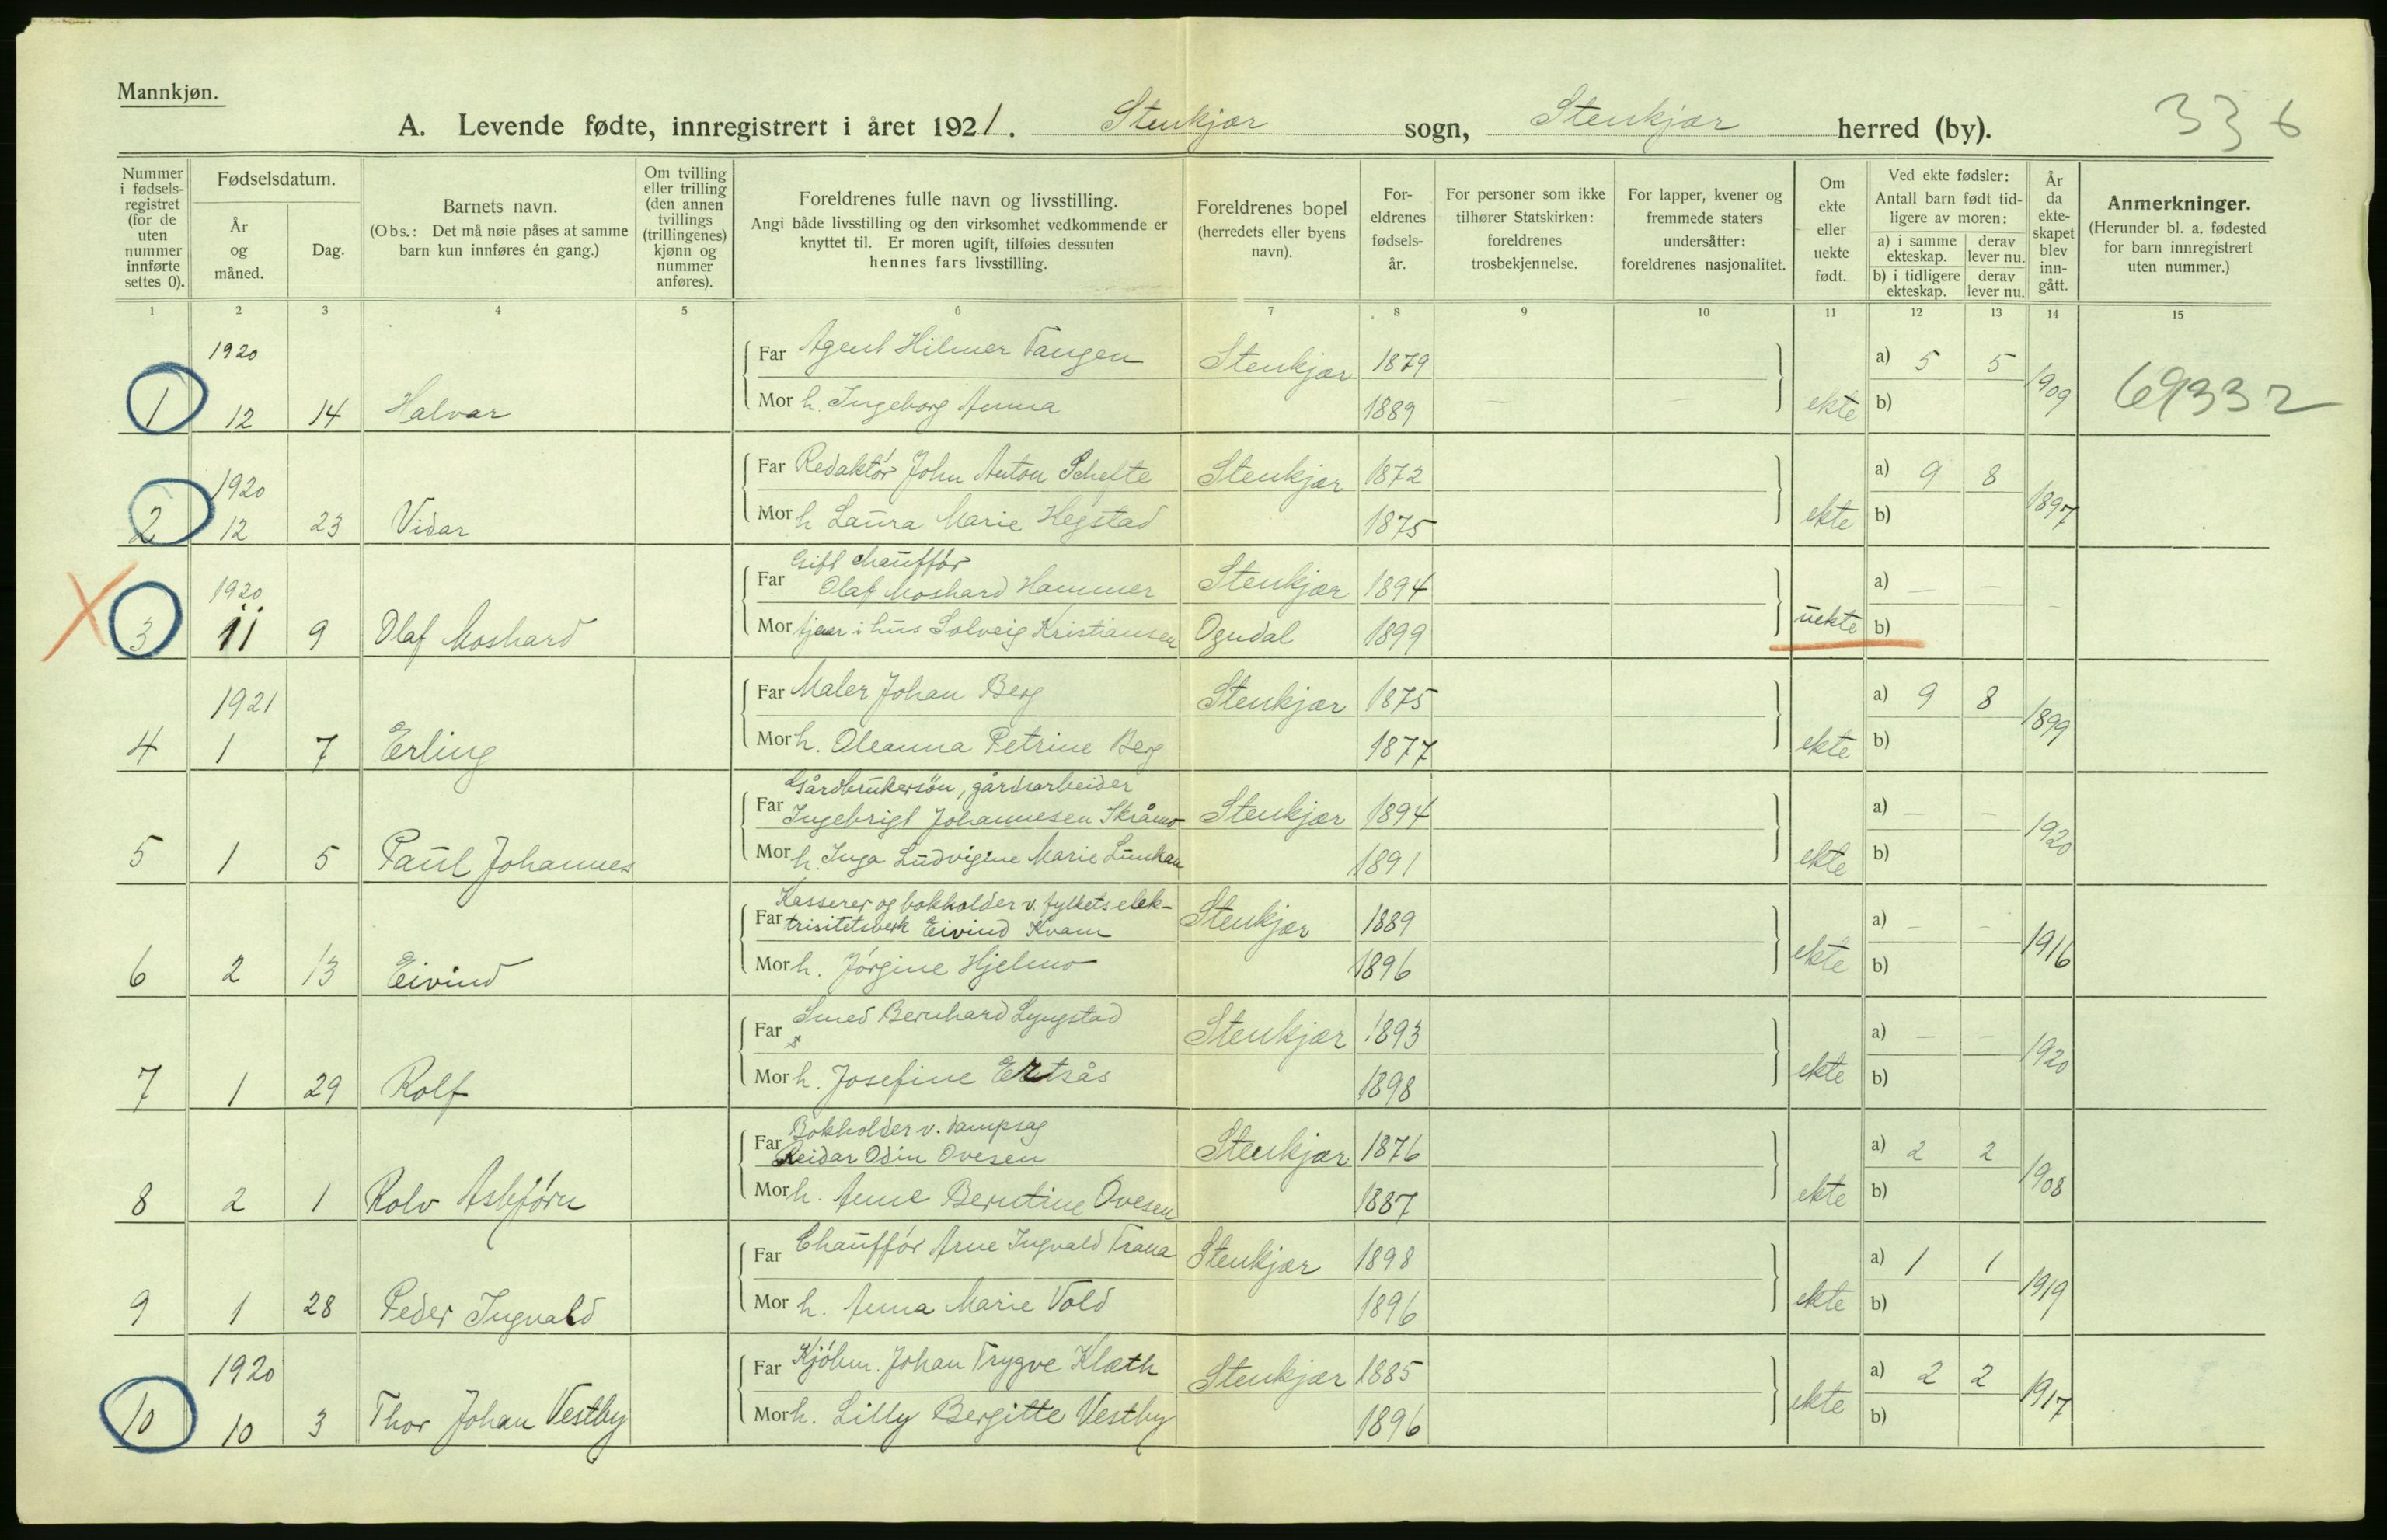 Mannkjøn.
A. Levende fødte, innregistrert i året 1921. Stenkjær sogn, Stenkjær herred (by). 336
Nummer i fødsels-registret (for de uten nummer innførte settes 0).
Fødselsdatum.
År og måned.
Dag.
Barnets navn.
(Obs.: Det må nøie påses at samme barn kun innføres én gang.)
Om tvilling eller trilling (den annen tvillings (trillingenes) kjønn og nummer anføres).
Foreldrenes fulle navn og livsstilling.
Angi både livsstilling og den virksomhet vedkommende er knyttet til. Er moren ugift, tilføies dessuten hennes fars livsstilling.
Foreldrenes bopel (herredets eller byens navn).
For-eldrenes fødsels-år.
For personer som ikke tilhører Statskirken: foreldrenes trosbekjennelse.
For lapper, kvener og fremmede staters undersåtter: foreldrenes nasjonalitet.
Om ekte eller uekte født.
Ved ekte fødsler: Antall barn født tid-ligere av moren:
a) i samme ekteskap. derav lever nu.
b) i tidligere ekteskap. derav lever nu.
År da ekte-skapet blev inn-gått.
Anmerkninger.
(Herunder bl. a. fødested for barn innregistrert uten nummer.)
1 2 3 4 5 6 7 8 9 10 11 12 13 14 15
1920 Far Agent Hilmer Tangen Stenkjær 1879 a) 5 5
1 12 14 Halvar Mor h. Ingeborg Anna 1889 — — ekte b) 1909 69332
1920 Far Redaktör John Anton Schefte Stenkjær 1872 a) 9 8
2 12 23 Vidar Mor h Laura Marie Hegstad 1875 ekte b) 1897
Gift chaufför
1920 Far Olaf Moshard Hammer Stenkjær 1894 a) — —
3 11 9 Olaf Moshard Mor tjener i hus Solveig Kristiansen Ogndal 1899 uekte b) —
1921 Far Maler Johan Berg Stenkjær 1875 a) 9 8
4 1 7 Erling Mor h. Oleanna Petrine Berg 1877 ekte b) 1899
Gårdbrukersön, gårdsarbeider
Far Ingebrigt Johannesen Skråmo Stenkjær 1894 a) — —
5 1 5 Paul Johannes Mor h. Inga Ludvigine Marie 1891 ekte b) 1920
Kasserer og bokholder v. fylkets elek-
Far trisitetsverk Eivind Kvam Stenkjær 1889 a) — —
6 2 13 Eivind Mor h. Jörgine Hjelmo 1896 ekte b) 1916
Far Smed Bernhard Lyngstad Stenkjær 1893 a) — —
7 1 29 Rolf Mor h. Josefine Ertsås 1898 ekte b) 1920
Bokholder v. dampsag
Far Reidar Odin Ovesen Stenkjær 1876 a) 2 2
8 2 1 Rolv Asbjörn Mor h. Anne Berntine Ovesen 1887 ekte b) 1908
Far Chaufför Arne Ingvald Trana Stenkjær 1898 a) 1 1
9 1 28 Peder Ingvald Mor h. Anna Marie Vold 1896 ekte b) 1919
1920 Far Kjöbm. Johan Trygve Klæth Stenkjær 1885 a) 2 2
10 10 3 Thor Johan Vestby Mor h. Lilly Bergitte Vestby 1896 ekte b) 1917